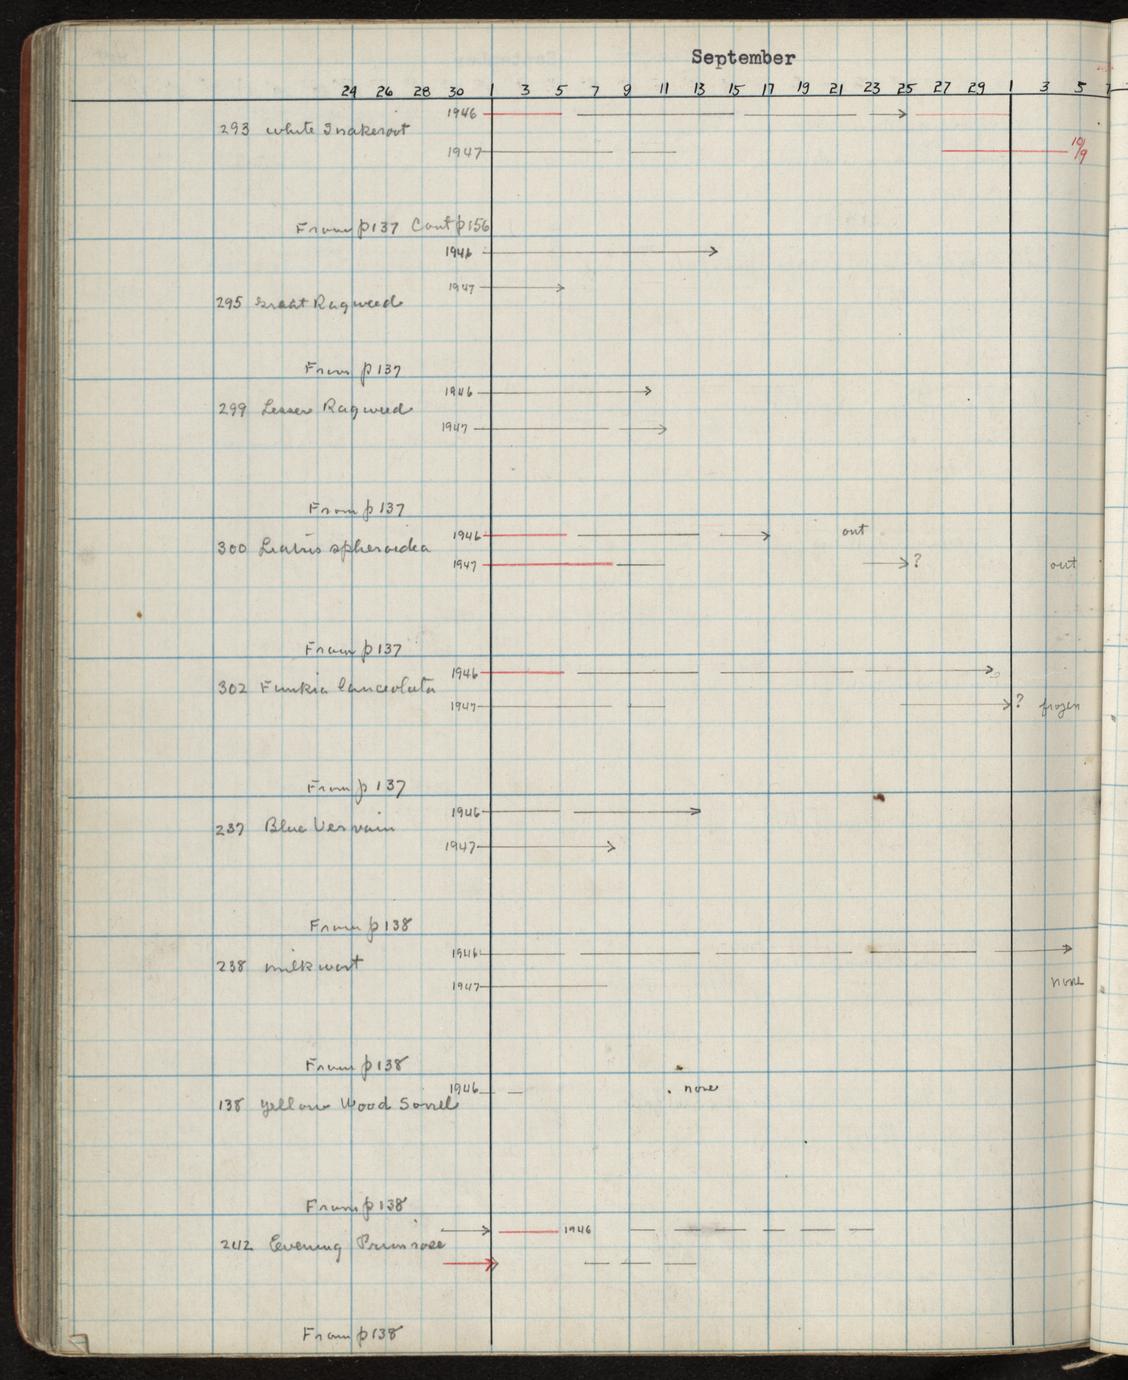 September
24 26 28 30 1 3 5 7 9 11 13 15 17 19 21 23 25 27 29 1 3 5 7
1946
293 white Snakeroot
1947 10/9
From p137 Cont p156
1946
1947
295 Great Ragweed
From p137
1946
299 Lesser Ragweed
1947
From p137
1946 out
300 Liatris spheroidea
1947 ? out
From p137
1946
302 Funkia lanceolata
1947 ? frozen
From p137
1946
237 Blue Vervain
1947
From p138
1946
238 milkwort
1947 none
From p138
1946 none
138 Yellow Wood Sorrel
From p138
1946
242 Evening Primrose
From p138